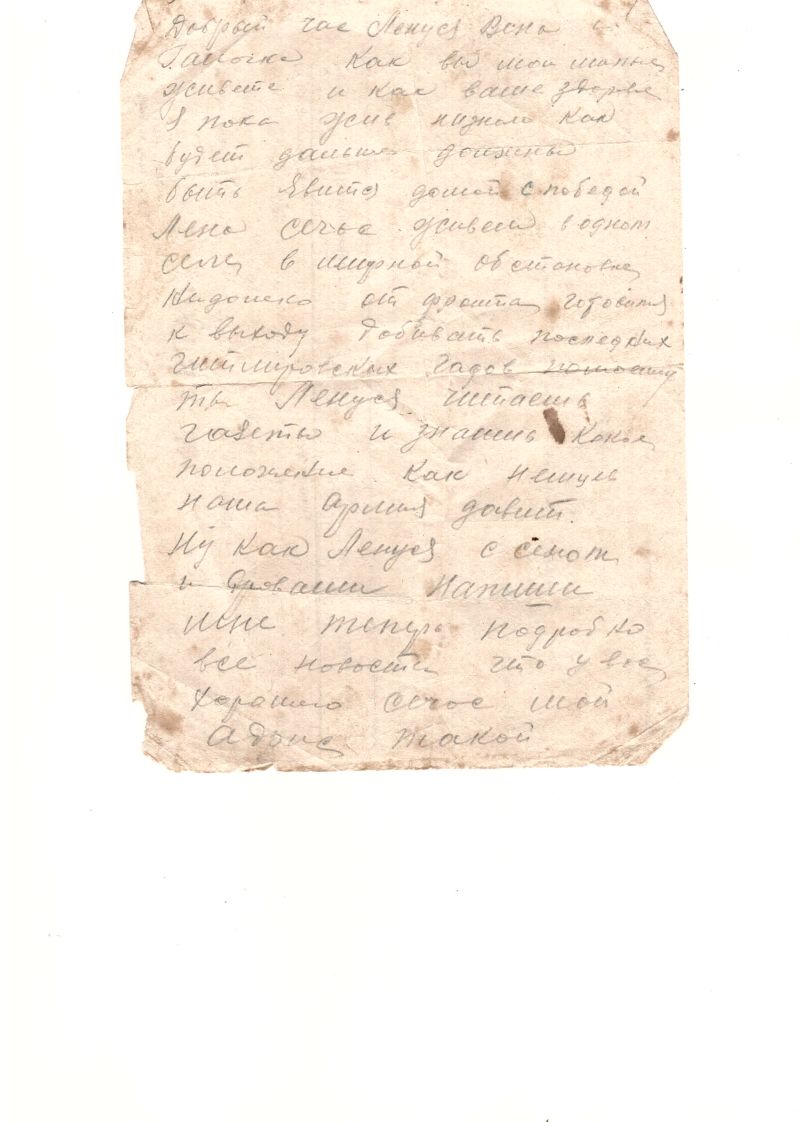 Добрый час Ленуся Вена и
Галочка Как вы мои милые
живете и как ваше здоровье
Я пока жив низнаю как
будет дальше должны
быть Явится домой с победой
Лена сечас живем водном
селе в мирной обстановке
Нидолеко от фронта готовимся
к выходу Добивать последних
Гитлировских Гадов
ты Ленуся читаешь
газеты и знаишь какое
положение Как немцев
наша Армия давит.
Ну как Ленуся с сеном
и Дровами Напиши
мне теперь подробно
все новости что у вас
хорошего сечас мой
адрис такой